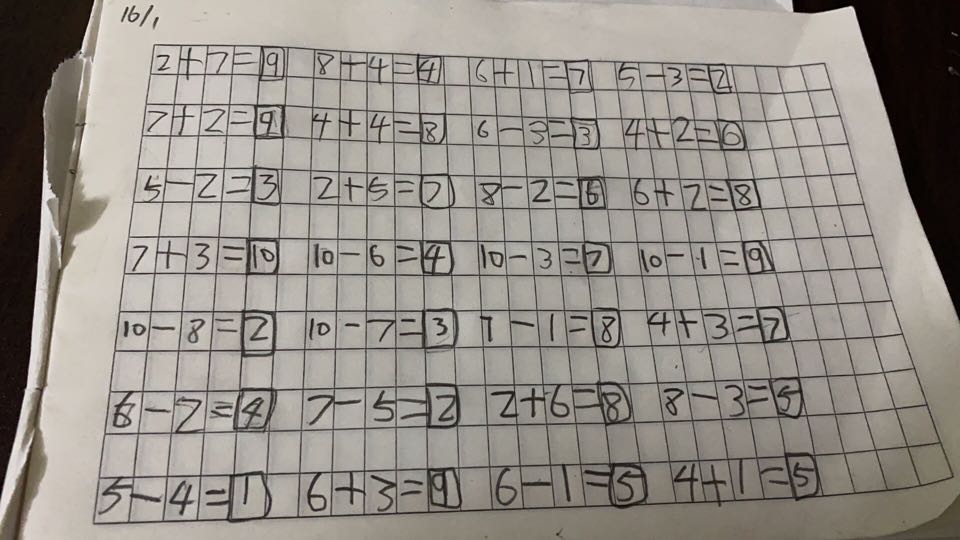 16/1
2+7=9 8+4=4 6+1=7 5-3=2
7+2=9 4+4=8 6-3=3 4+2=6
5-2=3 2+5=7 8-2=6 6+2=8
7+3=10 10-6=4 10-3=7 10-1=9
10-8=2 10-7=3 7-1=8 4+3=7
6-2=4 7-5=2 2+6=8 8-3=5
5-4=1 6+3=9 6-1=5 4+1=5